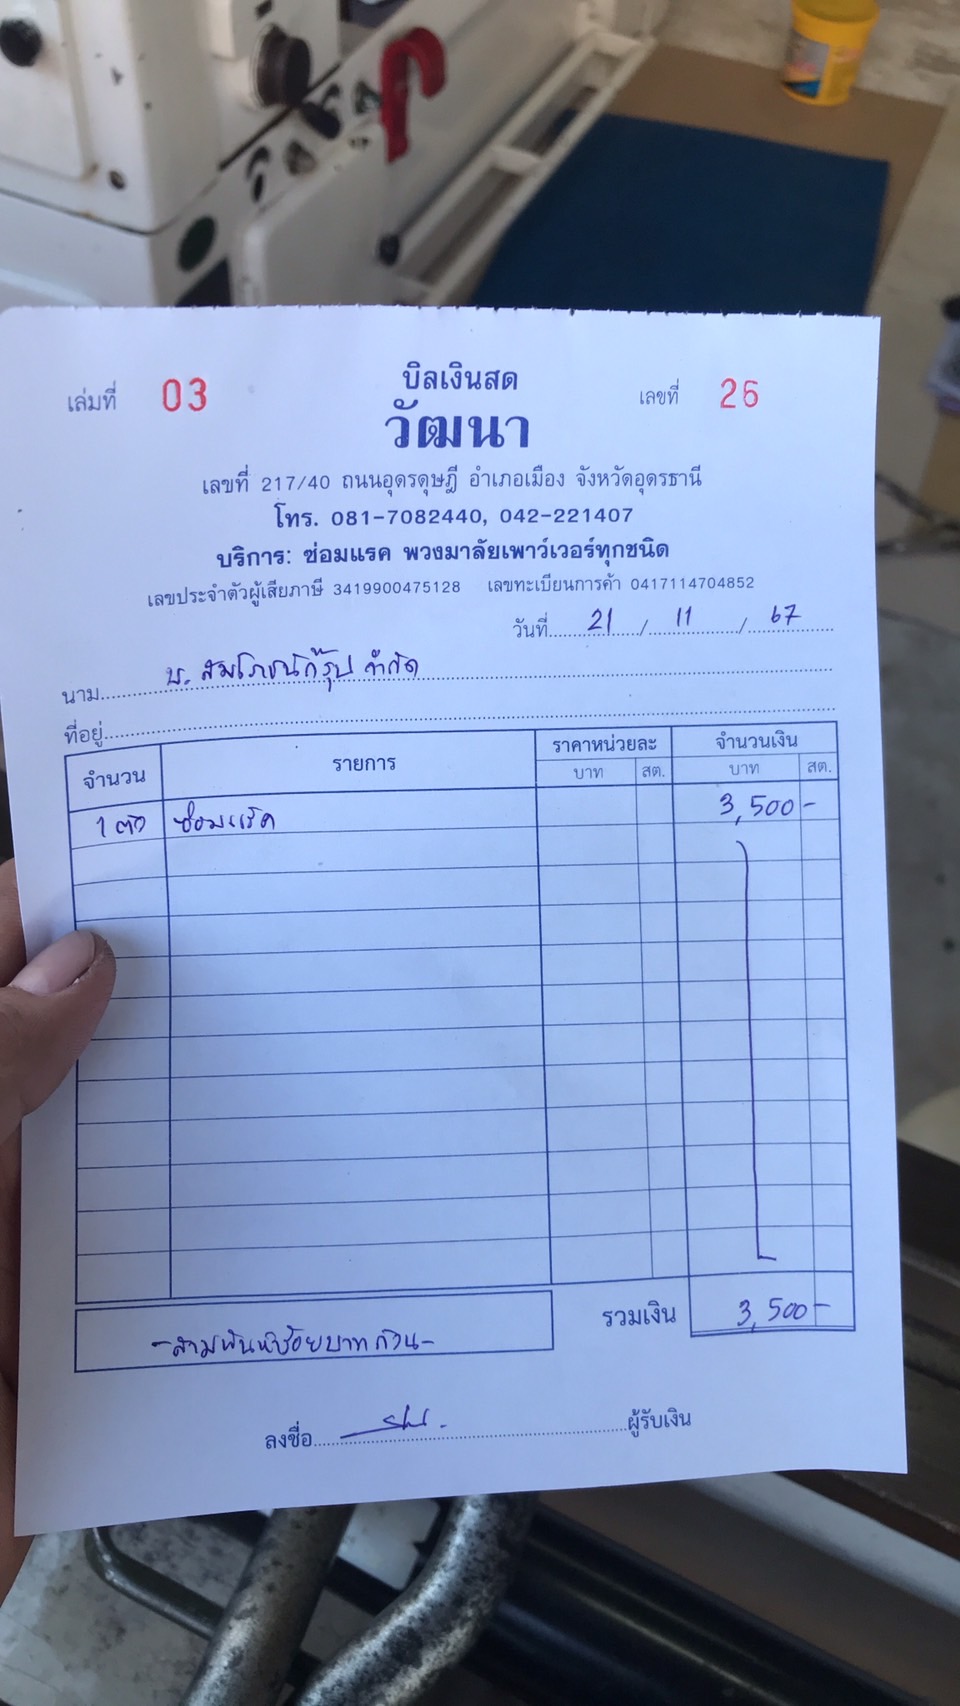 บิลเงินสด
เล่มที่ 03 เลขที่ 26
วัฒนา
เลขที่ 217/40 ถนนอุดรดุษฎี อำเภอเมือง จังหวัดอุดรธานี
โทร. 081-7082440, 042-221407
บริการ: ซ่อมแรค พวงมาลัยเพาว์เวอร์ทุกชนิด
เลขประจำตัวผู้เสียภาษี 3419900475128 เลขทะเบียนการค้า 0417114704852
วันที่ 21 / 11 / 67
นาม บ. สมโภชน์กรุ๊ป จำกัด
ที่อยู่
จำนวน รายการ ราคาหน่วยละ จำนวนเงิน
บาท สต. บาท สต.
1 ตัว ซ่อมแร็ค 3,500-
รวมเงิน 3,500-
-สามพันห้าร้อยบาทถ้วน-
ลงชื่อ ผู้รับเงิน